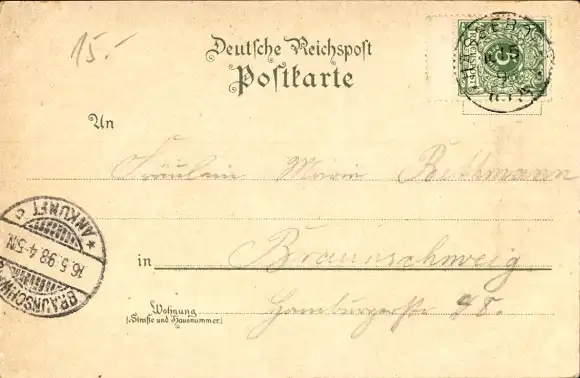 15.-
Deutsche Reichspost
Postkarte
An
Fräulein Marie
in Braunschweig
Wohnung
(Straße und Hausnummer)
Hamburgerstr 48.
BRAUNSCHW
16.5.98.4-5N.
* ANKUNFT c
5